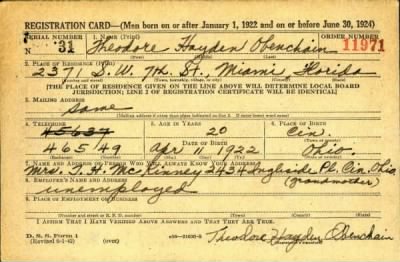 REGISTRATION CARD—(Men born on or after January 1, 1922 and on or before June 30, 1924)
SERIAL NUMBER 1. NAME (Print) ORDER NUMBER
N 31 Theodore Hayden Obenchain 11971
2. PLACE OF RESIDENCE (Print)
2371 S.W. 7th St., Miami Florida
[THE PLACE OF RESIDENCE GIVEN ON THE LINE ABOVE WILL DETERMINE LOCAL BOARD
JURISDICTION; LINE 2 OF REGISTRATION CERTIFICATE WILL BE IDENTICAL]
3. MAILING ADDRESS
same
4. TELEPHONE 5. AGE IN YEARS 6. PLACE OF BIRTH
45637 20 Cin.
DATE OF BIRTH
46549 Apr 11 1922 Ohio
7. NAME AND ADDRESS OF PERSON WHO WILL ALWAYS KNOW YOUR ADDRESS
Mrs. T. H. McKinney 2434 Ingleside Pl. Cin. Ohio
8. EMPLOYER'S NAME AND ADDRESS (grandmother)
unemployed
9. PLACE OF EMPLOYMENT OR BUSINESS
I AFFIRM THAT I HAVE VERIFIED ABOVE ANSWERS AND THAT THEY ARE TRUE.
D. S. S. Form 1
(Revised 6-1-42) (over) Theodore Hayden Obenchain